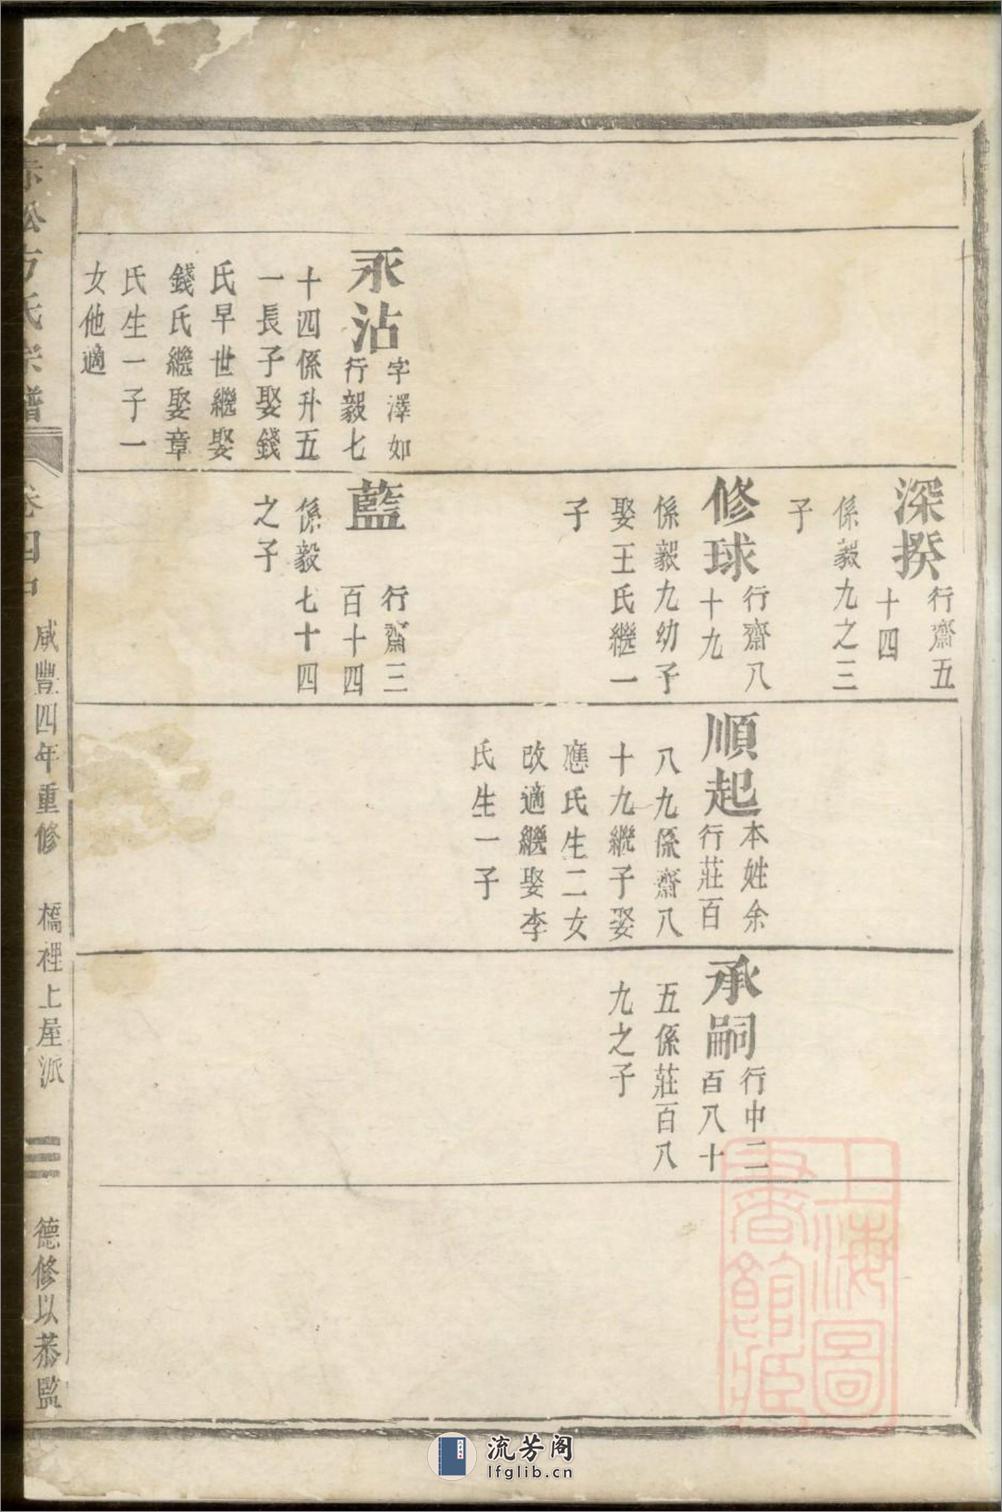 永沾
字澤如
行毅七
十四係升五
一長子娶錢
氏早世繼娶
錢氏繼娶章
氏生一子一
女他適
深揆
行齋五
十四
係毅九之三
子
修球
行齋八
十九
係毅九幼子
娶王氏繼一
子
藍
行齋三
百十四
係毅七十四
之子
順起
本姓余
行莊百
八九係齋八
十九繼子娶
應氏生二女
改適繼娶李
氏生一子
承嗣
行中二
百八十
五係莊百八
九之子
赤松方氏宗譜
卷四中
咸豐四年重修
橋裡上屋派
三
德修以恭監
上海圖
書館藏
流芳阁
lfglib.cn